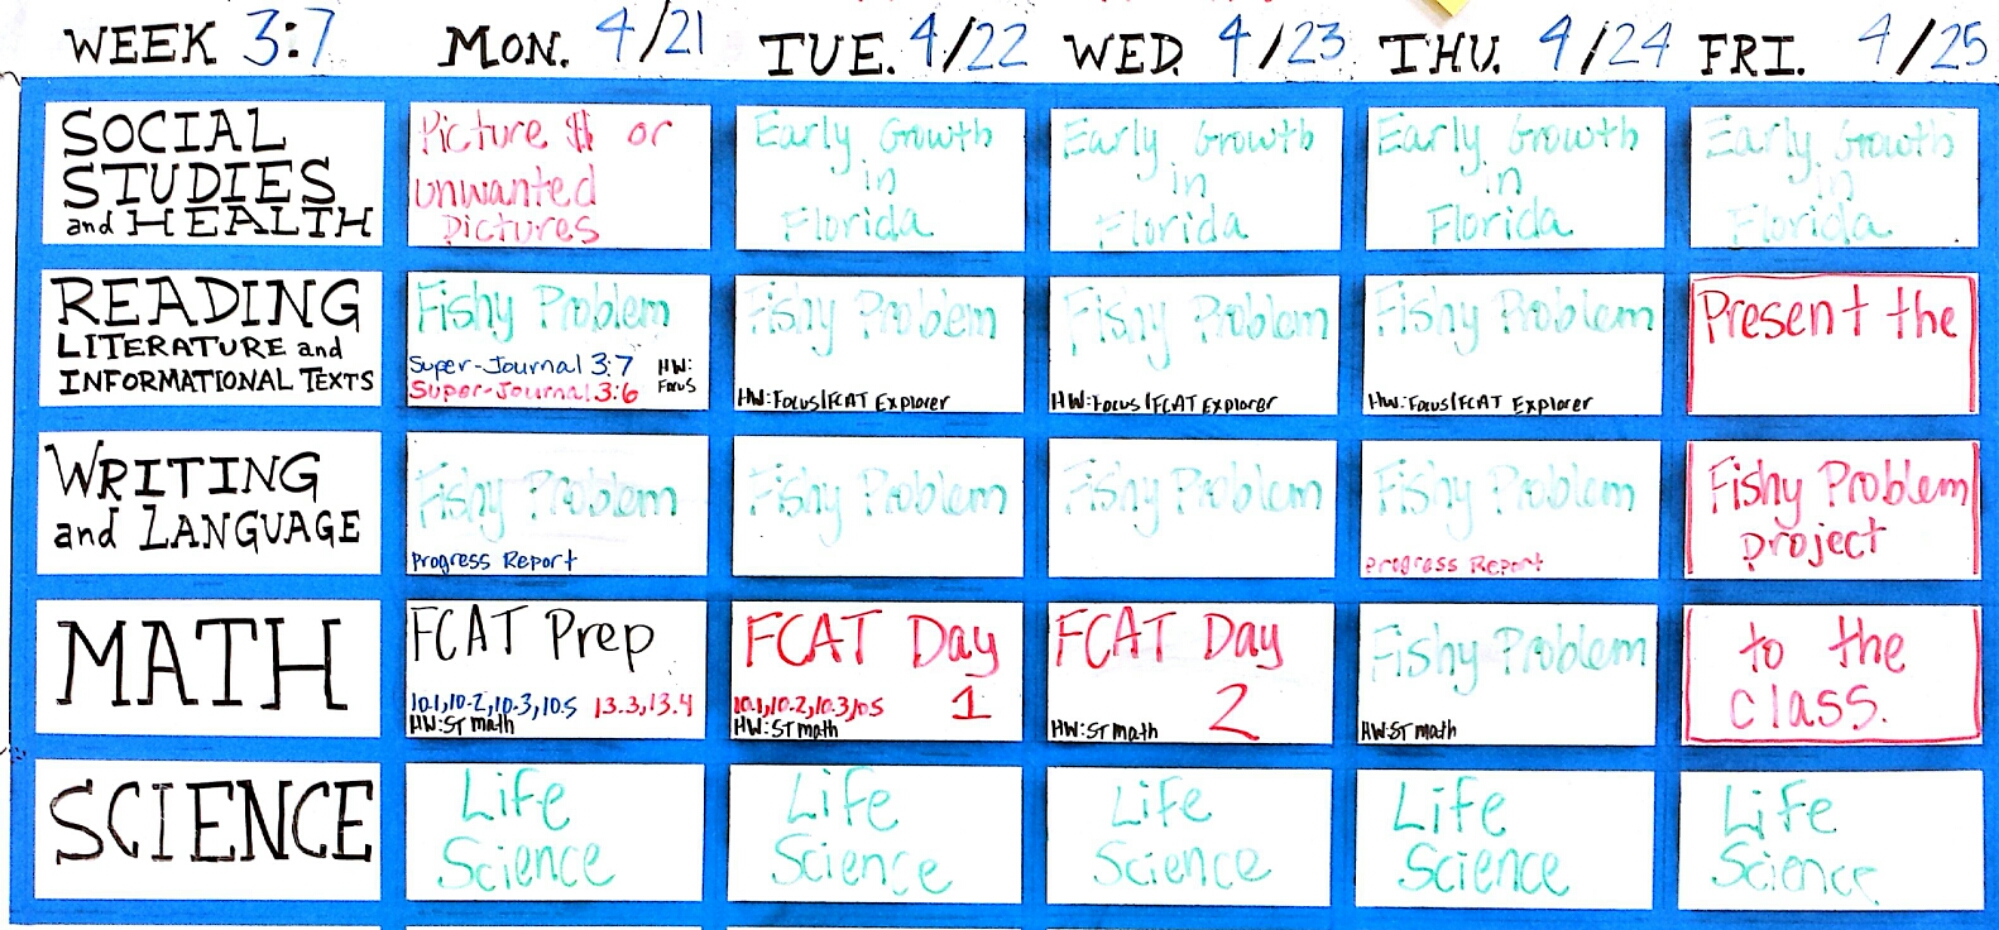 WEEK 3:7 MON. 4/21 TUE. 4/22 WED. 4/23 THU. 4/24 FRI. 4/25
SOCIAL
STUDIES
and HEALTH
Picture $ or
unwanted
pictures
Early Growth
in
Florida
Early Growth
in
Florida
Early Growth
in
Florida
Early Growth
in
Florida
READING
LITERATURE and
INFORMATIONAL TEXTS
Fishy Problem
Super-Journal 3:7
Super-Journal 3:6
HW:
Focus
Fishy Probem
HW:Focus/FCAT Explorer
Fishy Problem
HW:Focus/FCAT Explorer
Fishy Problem
HW:Focus/FCAT Explorer
Present the
WRITING
and LANGUAGE
Fishy Problem
Progress Report
Fishy Problem
Fishy Problem
Fishy Problem
Progress Report
Fishy Problem
project
MATH
FCAT Prep
10.1,10.2,10.3,10.5 13.3,13.4
HW:ST math
FCAT Day
1
10.1,10.2,10.3,10.5
HW:ST math
FCAT Day
2
HW:ST math
Fishy Problem
HW:ST math
to the
class.
SCIENCE
Life
Science
Life
Science
Life
Science
Life
Science
Life
Science